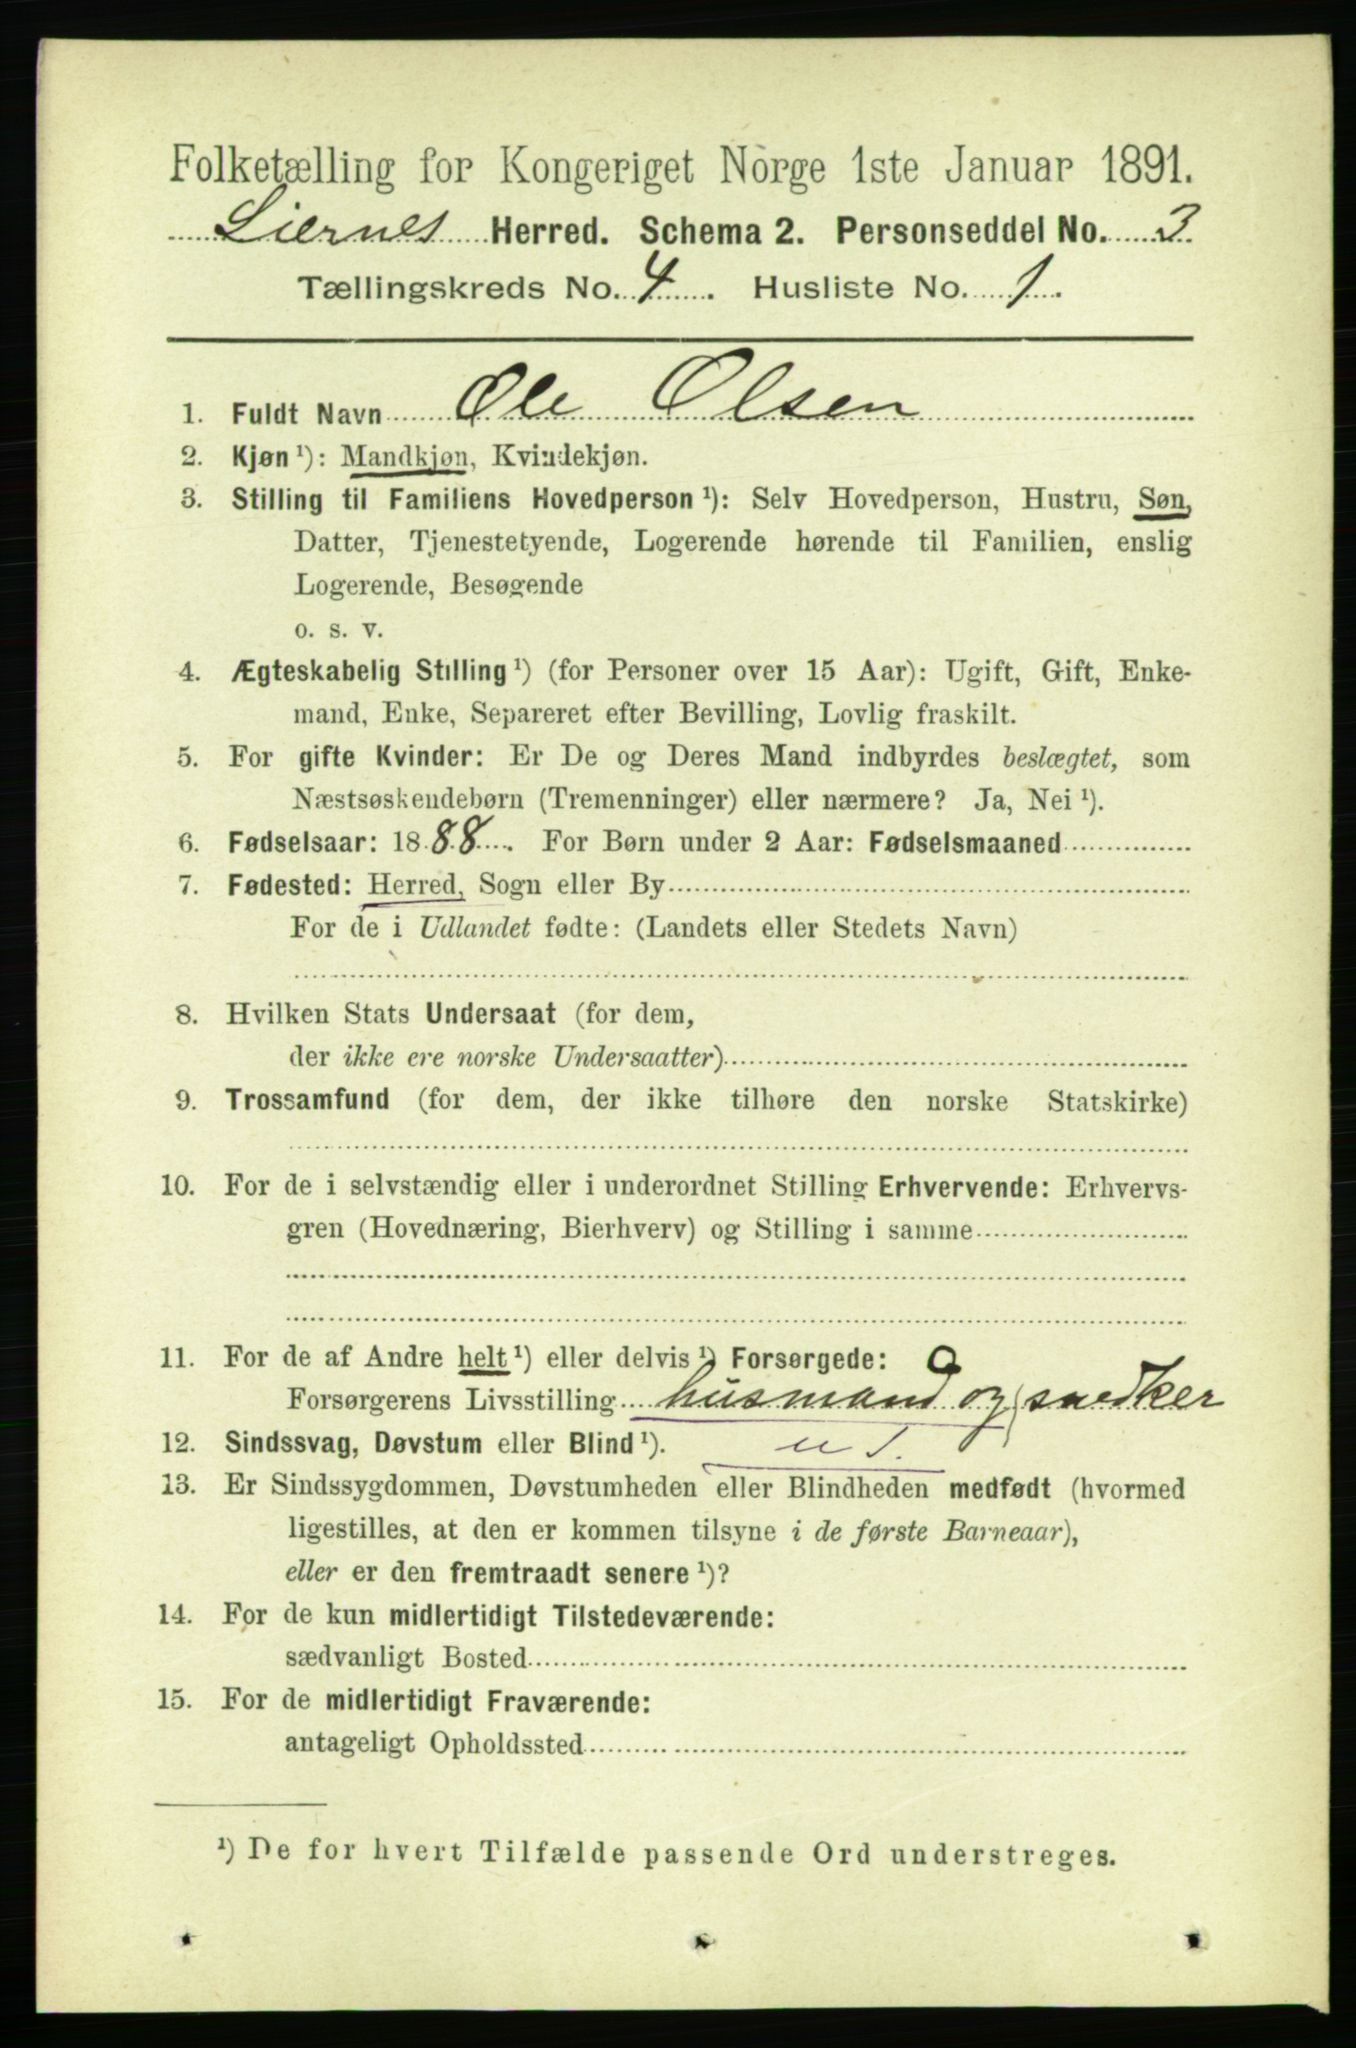 Folketælling for Kongeriget Norge 1ste Januar 1891.
Liernes Herred. Schema 2. Personseddel No. 3.
Tællingskreds No. 4. Husliste No. 1.
1. Fuldt Navn Ole Olsen
2. Kjøn ¹): Mandkjøn, Kvindekjøn.
3. Stilling til Familiens Hovedperson ¹): Selv Hovedperson, Hustru, Søn,
Datter, Tjenestetyende, Logerende hørende til Familien, enslig
Logerende, Besøgende
o. s. v.
4. Ægteskabelig Stilling ¹) (for Personer over 15 Aar): Ugift, Gift, Enke-
mand, Enke, Separeret efter Bevilling, Lovlig fraskilt.
5. For gifte Kvinder: Er De og Deres Mand indbyrdes beslægtet, som
Næstsøskendebørn (Tremenninger) eller nærmere? Ja, Nei ¹).
6. Fødselsaar: 1888. For Børn under 2 Aar: Fødselsmaaned
7. Fødested: Herred, Sogn eller By
For de i Udlandet fødte: (Landets eller Stedets Navn)
8. Hvilken Stats Undersaat (for dem,
der ikke ere norske Undersaatter)
9. Trossamfund (for dem, der ikke tilhøre den norske Statskirke)
10. For de i selvstændig eller i underordnet Stilling Erhvervende: Erhvervs-
gren (Hovednæring, Bierhverv) og Stilling i samme
11. For de af Andre helt ¹) eller delvis ¹) Forsørgede:
Forsørgerens Livsstilling husmand og snedker
12. Sindssvag, Døvstum eller Blind ¹).
13. Er Sindssygdommen, Døvstumheden eller Blindheden medfødt (hvormed
ligestilles, at den er kommen tilsyne i de første Barneaar),
eller er den fremtraadt senere ¹)?
14. For de kun midlertidigt Tilstedeværende:
sædvanligt Bosted
15. For de midlertidigt Fraværende:
antageligt Opholdssted
¹) De for hvert Tilfælde passende Ord understreges.